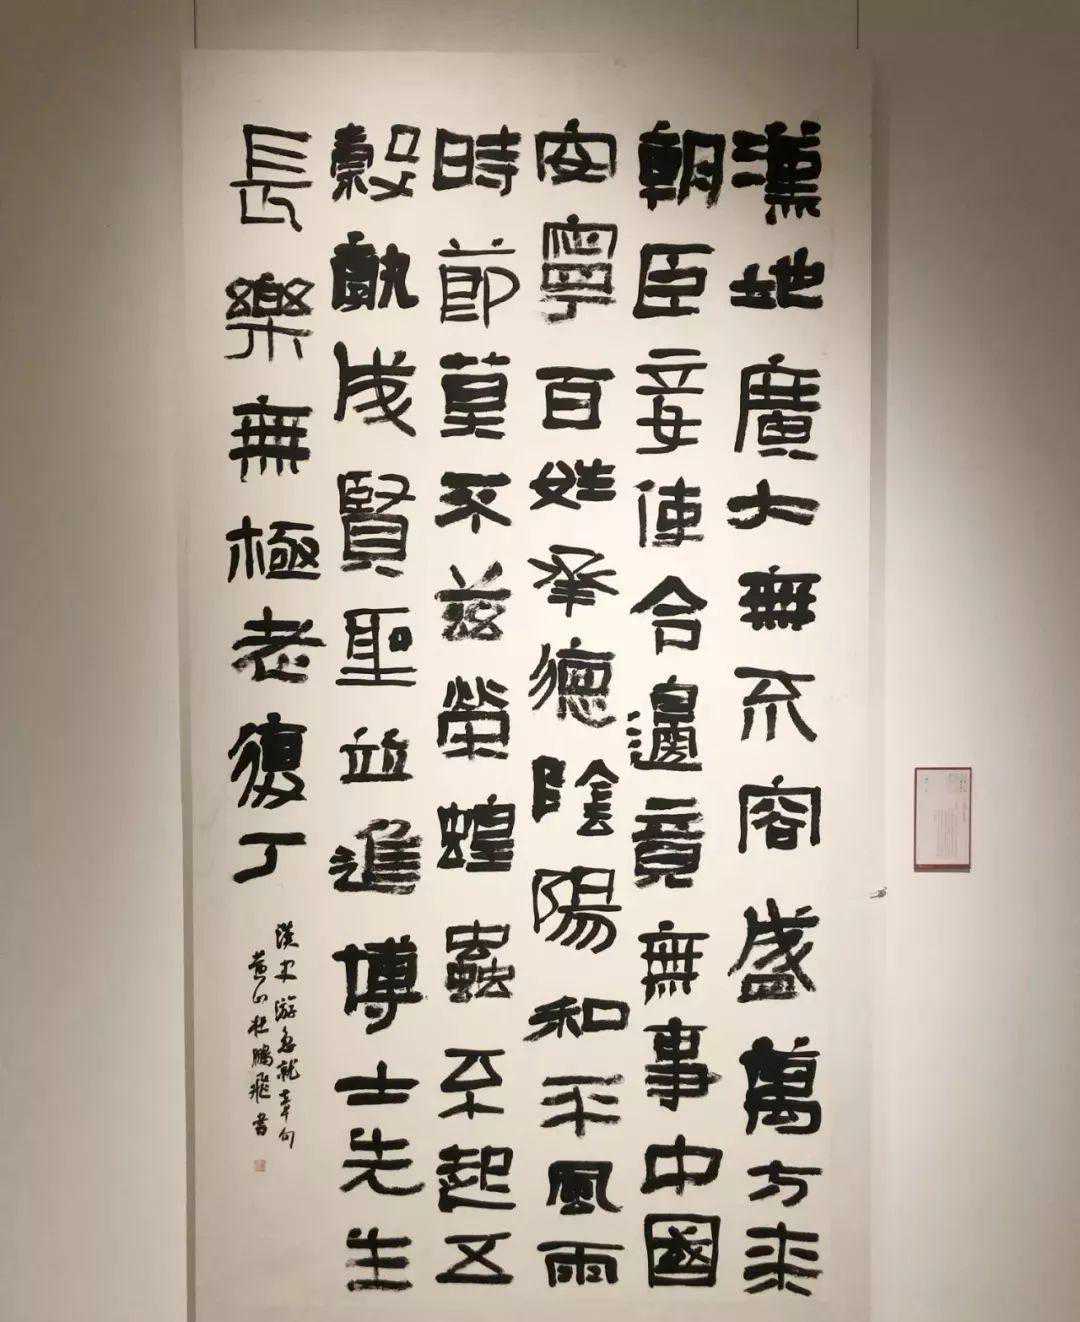 漢地廣大無不容盛萬方來
朝臣妾使令邊竟無事中國
安寧百姓承德陰陽和平風雨
時節莫不兹榮蝗蟲不起五
穀孰成賢聖並進博士先生
長樂無極老復丁
漢史游急就章句
黄山杜鵬飛書